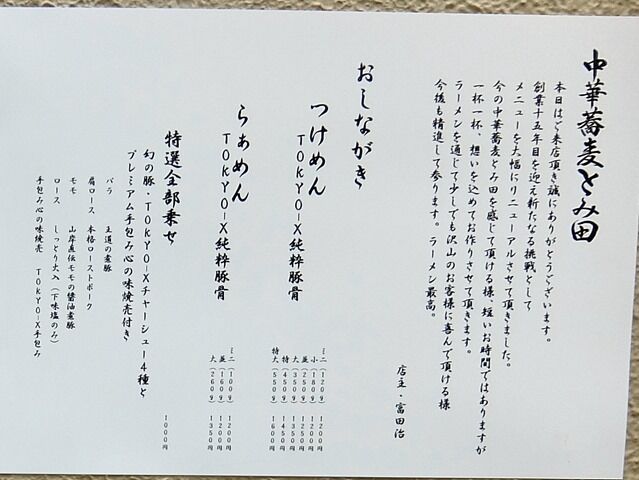 中華蕎麦とみ田
本日はご来店頂き誠にありがとうございます。
創業十五年目を迎え新たなる挑戦として
メニューを大幅にリニューアルさせて頂きました。
今の中華蕎麦とみ田を感じて頂ける様、短いお時間ではありますが
一杯一杯、想いを込めてお作りさせて頂きます。
ラーメンを通じて少しでも沢山のお客様に喜んで頂ける様
今後も精進して参ります。 ラーメン最高。
店主・富田治
おしながき
つけめん
TOKYO-X純粋豚骨
ミニ (120g) 1200円
小 (180g) 1200円
並 (250g) 1250円
大 (350g) 1350円
特 (450g) 1450円
特大 (550g) 1600円
らぁめん
TOKYO-X純粋豚骨
ミニ (100g) 1200円
並 (160g) 1200円
大 (260g) 1350円
特選全部乗せ
幻の豚・TOKYO-Xチャーシュー4種と
プレミアム手包み心の味焼売付き
1000円
バラ 王道の煮豚
肩ロース 本格ローストポーク
モモ 山岸直伝モモの醤油煮豚
ロース しっとり火入(下味塩のみ)
手包み心の味焼売 TOKYO-X手包み